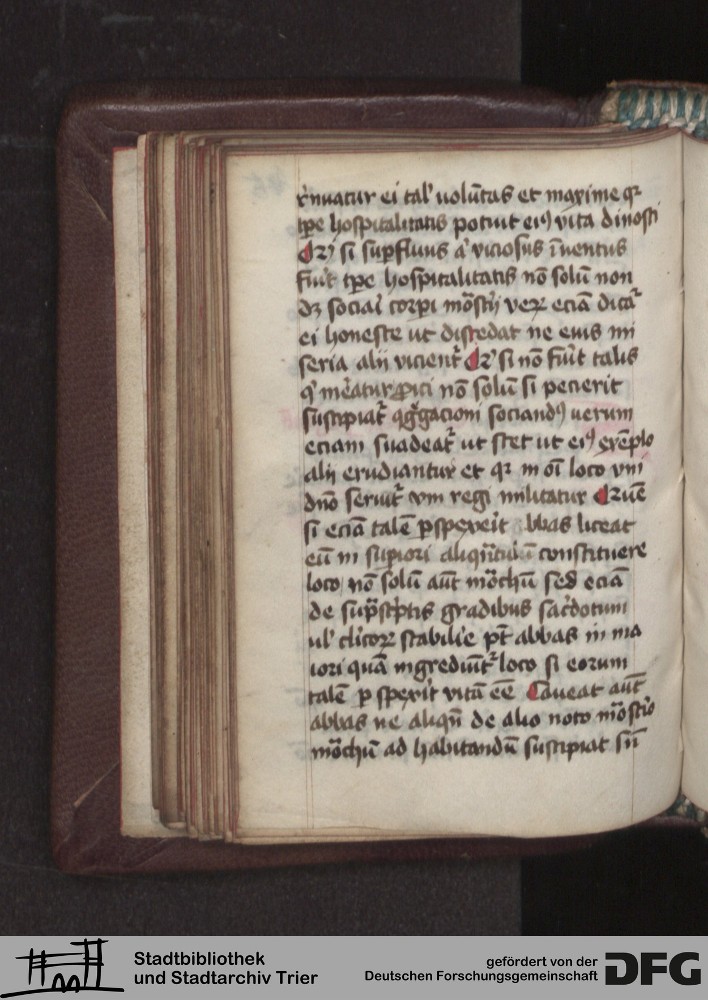 r̾nuatur ei tal' uolūtas et maxime qꝛ
tp̄e hospitalitatis potuit eiꝰ vita dinosci
Qꝛ si supfluus aͭ viciosus īuentus
fuit tp̄e hospitalitatis nō solū non
dꝫ sociaī corpi mōstīj veꝝ eciā dicaͭ
ei honeste ut discedat ne euis mi
seria alij vicient᷑ Qꝛ si nō fuīt talis
q' meat᷑ ꝓici nō solū si pecierit
suscipiat᷑ ꝯg̾gacioni sociandꝰ uerum
eciam suadeat᷑ ut stet ut eiꝰ exēplo
alij erudiantur et qꝛ in oī loco vni
dn̄o seruit᷑ vni regi militatur Qꝛuē
si eciā talē ꝑspexeīt bbas liceat
eū in supiori aliqn̄tulū constituere
loco nō solū aūt mōchū sed eciā
de sup̄sc̾ptis gradibus sac̾dotum
ul' cl'icoꝝ stabilīe pt̄ abbas in ma
iori quā ingrediūt᷑ loco si eorum
talē ꝑ spexīt vitā eē Caueat aūt
abbas ne aliqn̄ de alio noto mōst'io
mōchū ad habitandū suscipiat sn̄
Stadtbibliothek
und Stadtarchiv Trier
gefördert von der
Deutschen Forschungsgemeinschaft
DFG